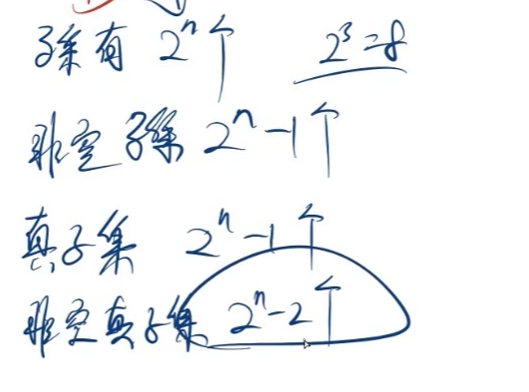 子集有 2ⁿ个 2³=8
非空子集 2ⁿ-1个
真子集 2ⁿ-1个
非空真子集 2ⁿ-2个